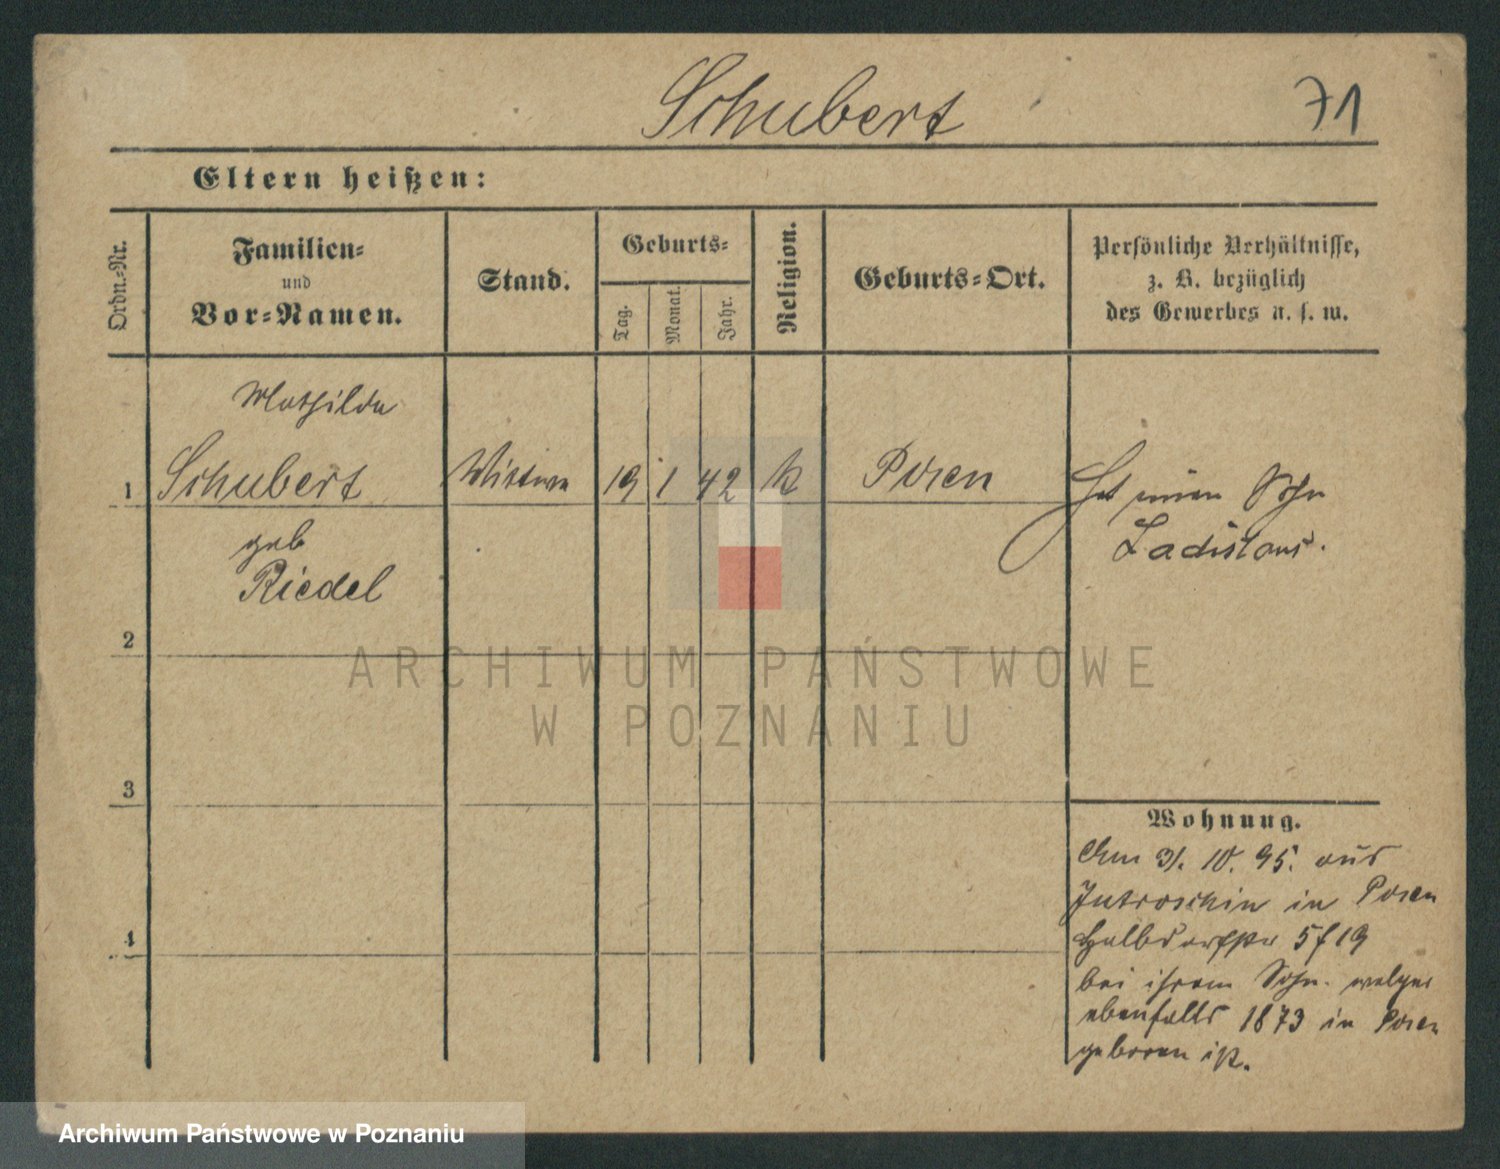 Schubert
71
Eltern heißen:
Ordn.-Nr.
Familien-
und
Vor-Namen.
Stand.
Geburts-
Tag.
Monat.
Jahr.
Religion.
Geburts-Ort.
Persönliche Verhältnisse,
z. B. bezüglich
des Gewerbes u. s. w.
Mathilde
1 Schubert Wittwe 19 1 42 k Posen
geb
Riedel
Hat einen Sohn
Ladislaus.
2
3
4
Wohnung.
Am 31. 10. 95. aus
Jutroschin in Posen
Halbdorfstr 5 f 19
bei ihrem Sohn. welcher
ebenfalls 1873 in Posen
geboren ist.
ARCHIWUM PAŃSTWOWE
W POZNANIU
Archiwum Państwowe w Poznaniu